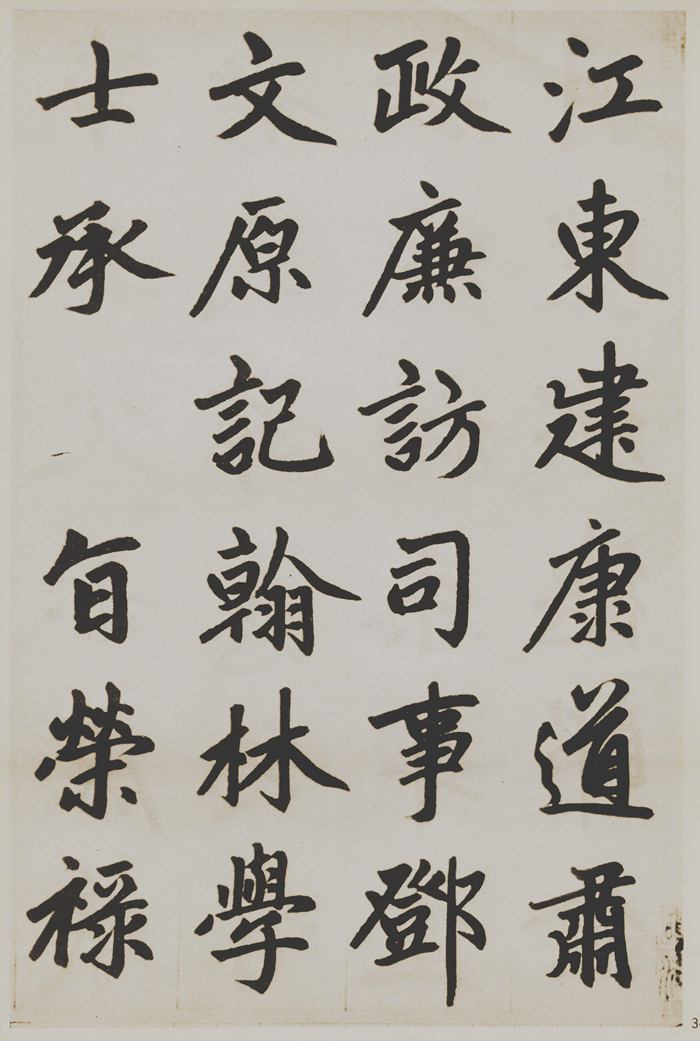 江東建康道肅
政廉訪司事鄧
文原記翰林學
士承旨榮祿
3